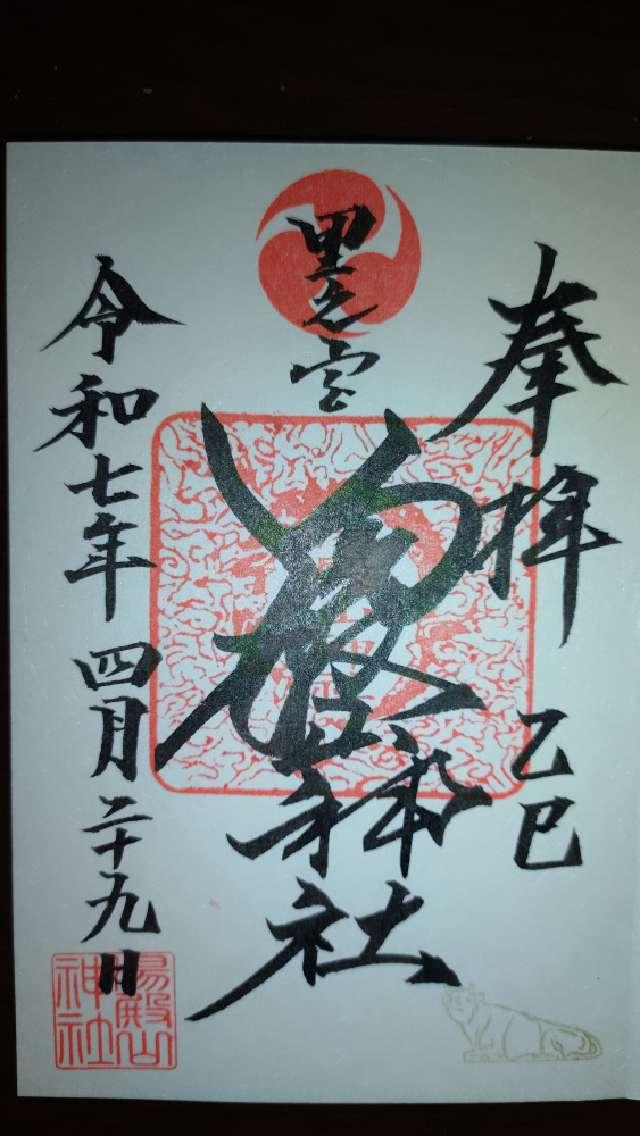 奉拝
乙巳
里之宮
湯殿山神社
令和七年四月二十九日
湯殿山
神社